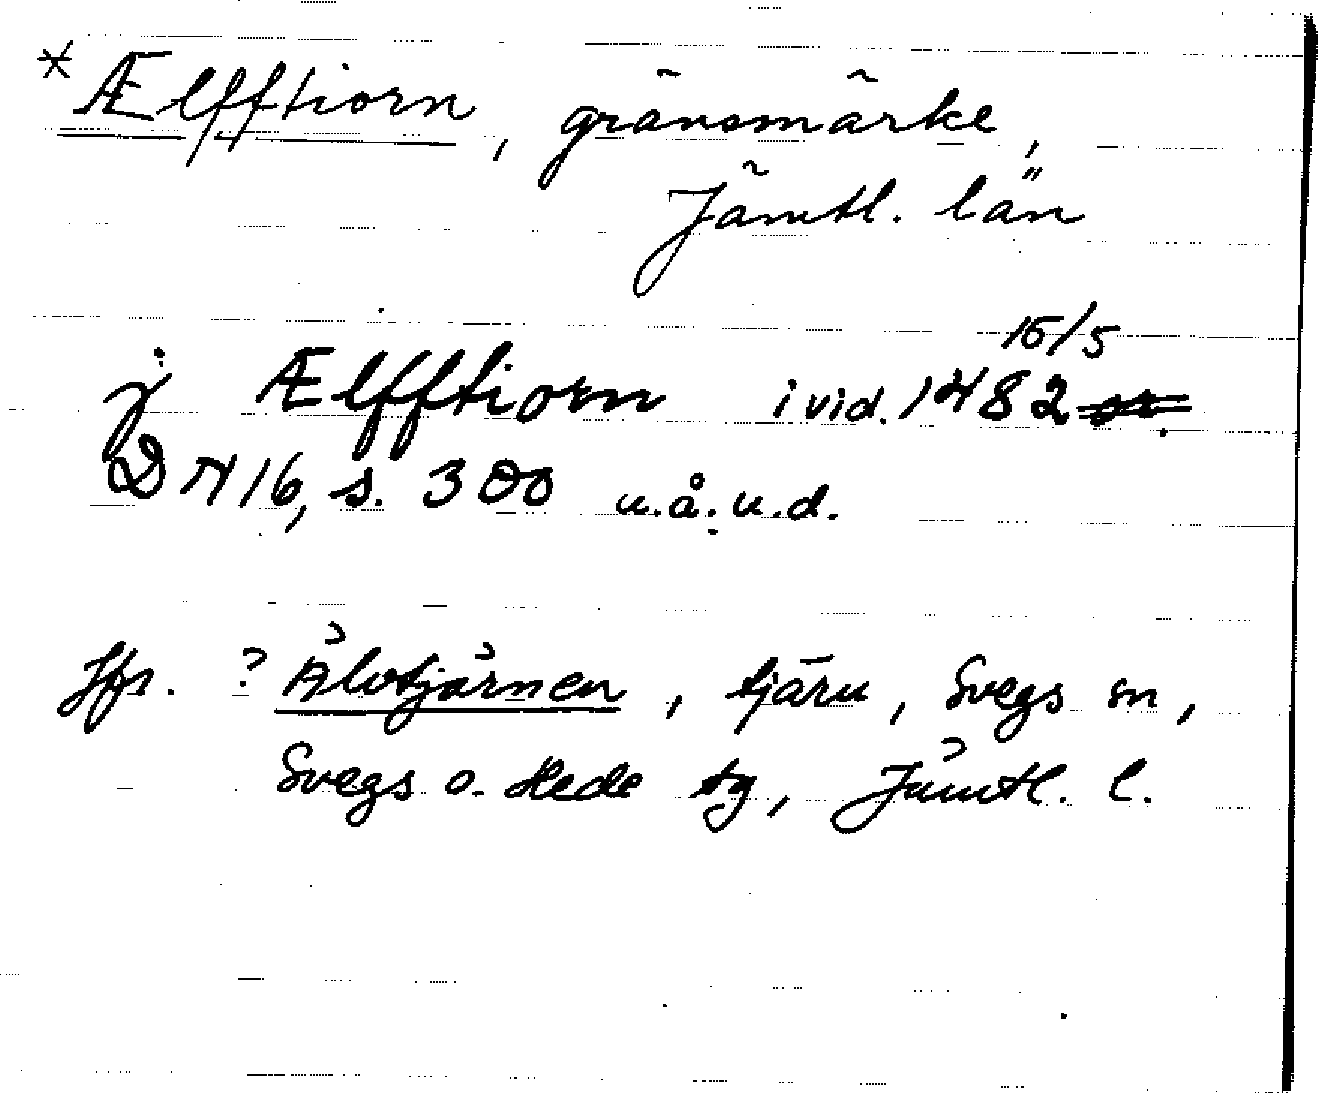 * Ælfftiorn, gränsmärke,
Jämtl. län
15/5
j Ælfftiorn i vid. 1482
DN 16, s. 300 u.å.u.d.
Jfr. ? Älvtjärnen, tjärn, Svegs sn,
Svegs o. Hede tg, Jämtl. l.